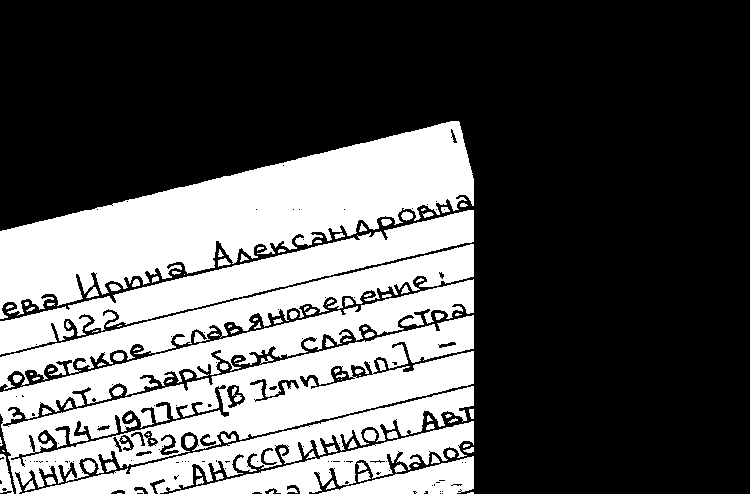 ева, Ирина Александровна
1922
советское славяноведение:
з. лит. о зарубеж. слав. стра
1974-1977гг. [В 7-ми вып.]. -
ИНИОН, 1978 - 20см.
заг.: АН СССР ИНИОН. Авт
ва, И.А. Калое